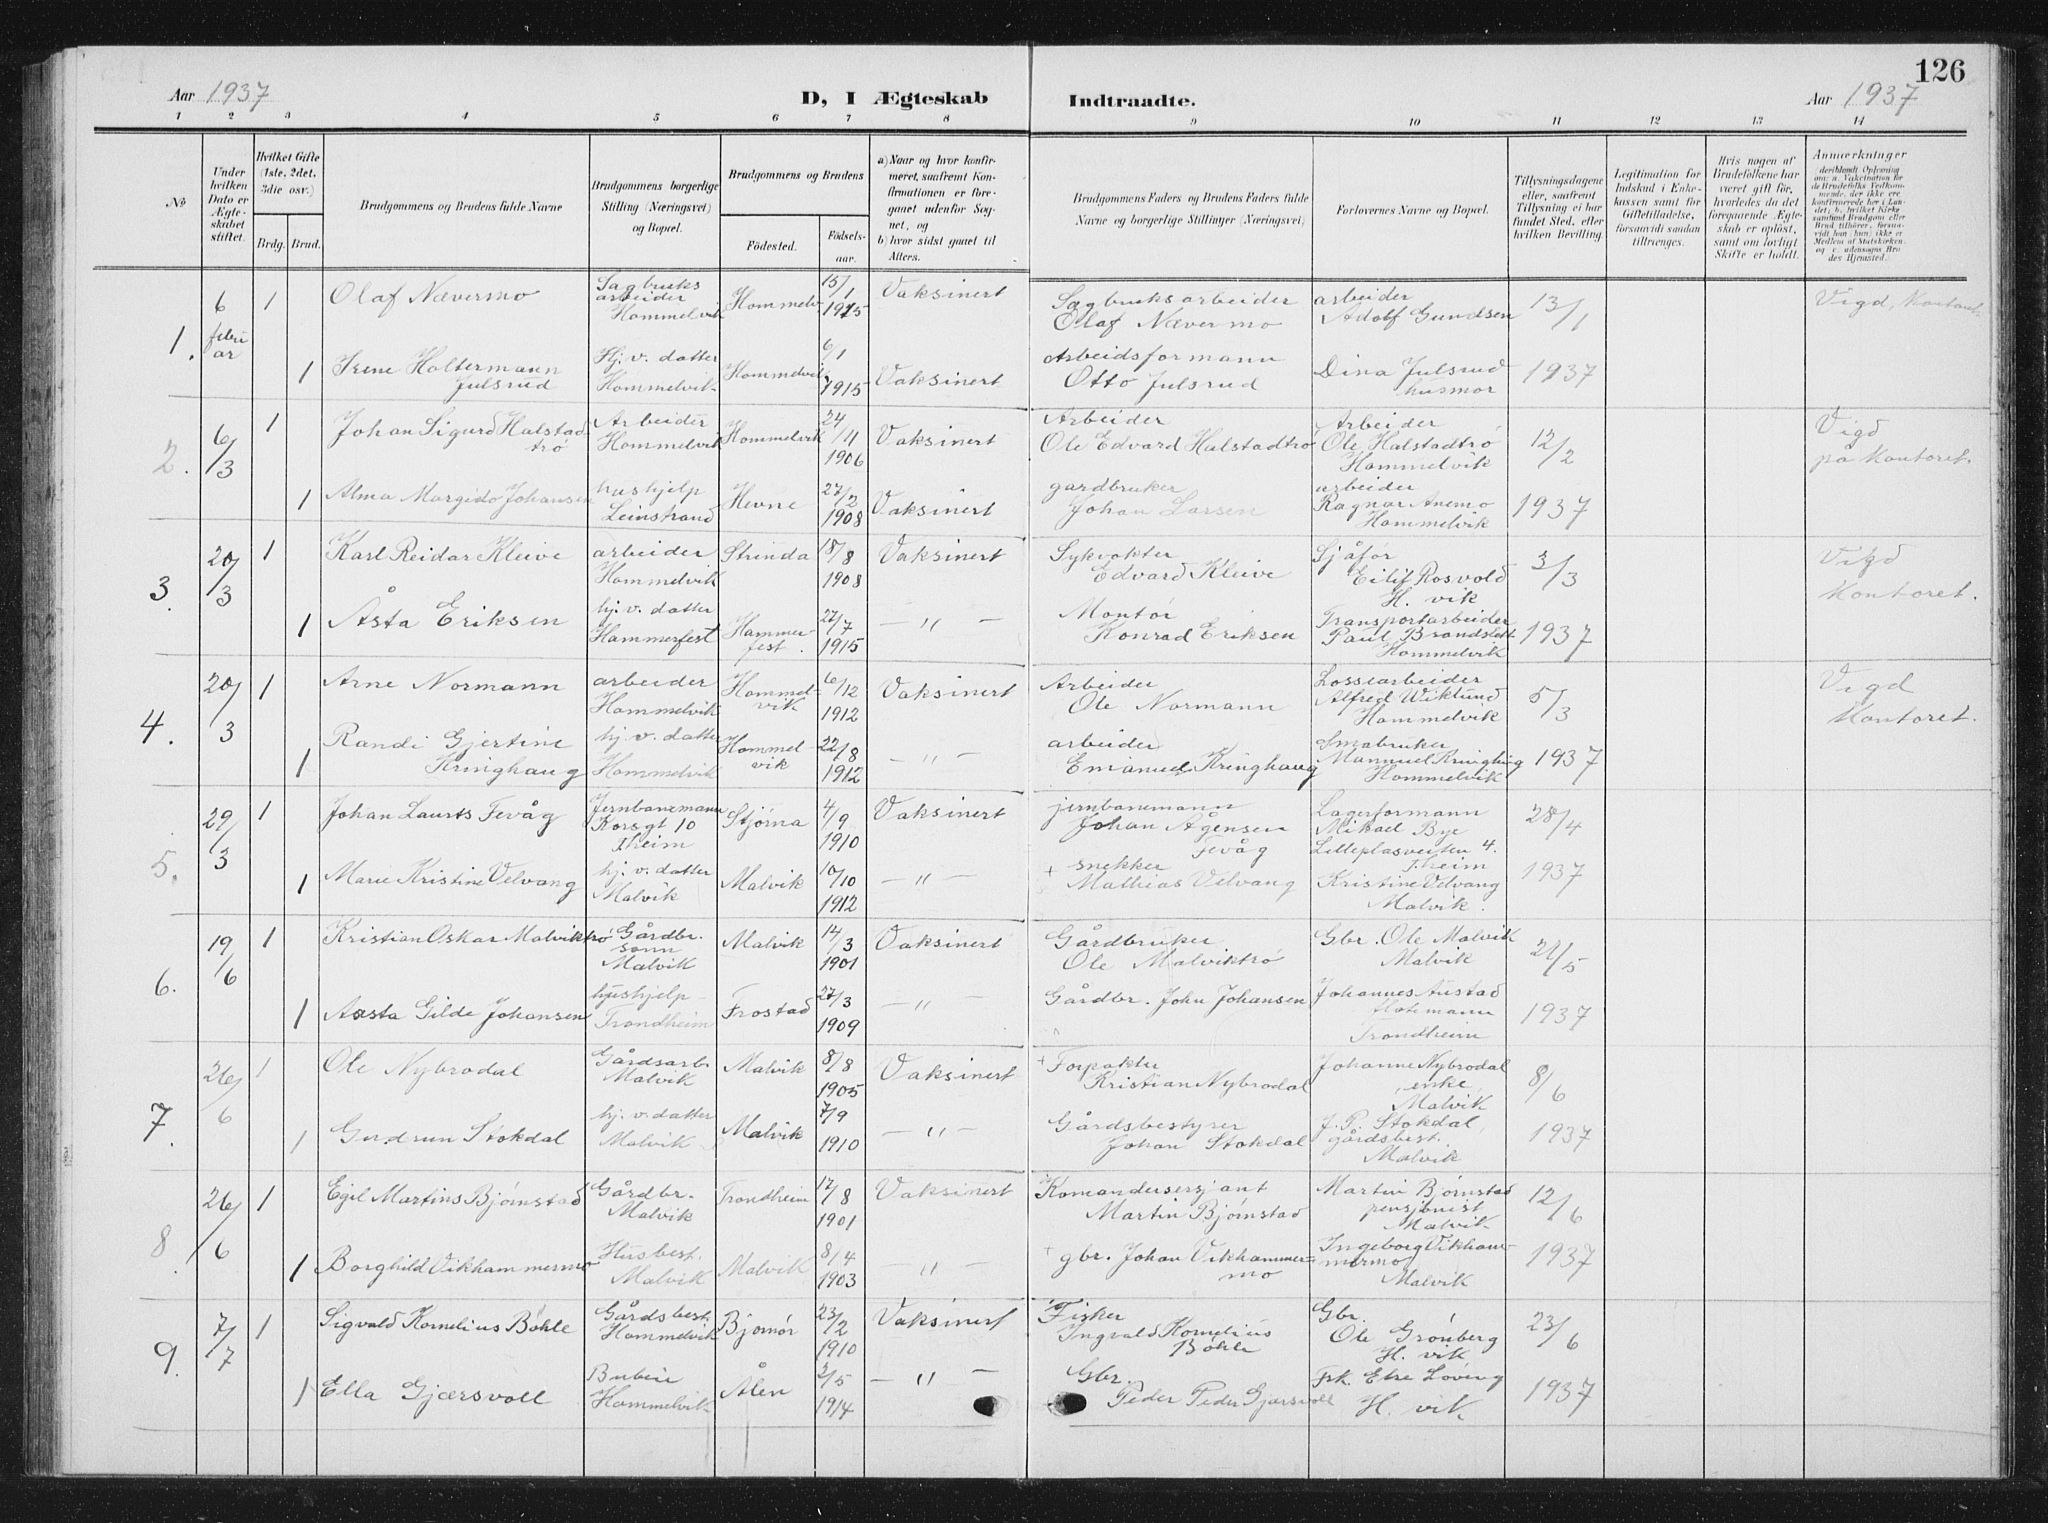 126
Aar 1937
D, I Ægteskab
Indtraadte.
Aar 1937
1 2 3 4 5 6 7 8 9 10 11 12 13 14
No
Under hvilken Dato er Ægteskabet stiftet.
Hvilket Gifte (1ste, 2det, 3die osv.)
Brdg. Brud.
Brudgommens og Brudens fulde Navne
Brudgommens borgerlige Stilling (Næringsvei) og Bopæl.
Brudgommens og Brudens
Födested.
Födsels-aar.
a) Naar og hvor konfirmeret, saafremt Konfirmationen er foregaaet udenfor Sognet, og
b) hvor sidst gaaet til Alters.
Brudgommens Faders og Brudens Faders fulde Navne og borgerlige Stillinger (Næringsvei).
Forlovernes Navne og Bopæl.
Tillysningsdagene eller, saafremt Tillysning ei har fundet Sted, efter hvilken Bevilling.
Legitimation for Indskud i Enkekassen samt for Giftetilladelse, forsaavidt saadan tiltrænges.
Hvis nogen af Brudefolkene har været gift för, hvorledes da det foregaaende Ægteskab er oplöst, samt om lovligt Skifte er holdt.
Anmærkninger
1. 6 februar 1 Olaf Nævermo Sagbruksarbeider Hommelvik Hommelv. 15/1 1915 Vaksinert Sagbruksarbeider Olaf Nævermo arbeider Adolf Gundsen 13/1 Vigd, Kontoret
1 Irene Holtermann Julsrud Hj. v. datter Hommelvik Hommelvik 6/1 1915 Vaksinert Arbeidsformann Otto Julsrud Dina Julsrud husmor 1937
2. 6/3 1 Johan Sigurd Halstadtrø Arbeider Hommelvik Hommelvik 24/11 1906 Vaksinert Arbeider Ole Edvard Halstadtrø Arbeider Ole Halstadtrø Hommelvik 12/2 Vigd på Kontoret.
1 Alma Margido Johansen hushjelp Leinstrand Hevne 27/2 1908 Vaksinert gardbruker Johan Larsen arbeider Ragnar Anemo Hommelvik 1937
3. 20/3 1 Karl Reidar Kleive arbeider Hommelvik Strinda 18/8 1908 Vaksinert Sykvokter Edvard Kleive Sjåfør Eilif Rosvold H. vik 3/3 Vigd Kontoret.
1 Åsta Eriksen hj. v. datter Hammerfest Hammerfest. 27/7 1915 — " — Montør Konrad Eriksen Transportarbeider Paul Brandslett Hommelvik 1937
4. 20/3 1 Arne Normann arbeider Hommelvik Hommelvik 6/12 1912 Vaksinert Arbeider Ole Normann Lossearbeider Alfred Wiklund Hommelvik 5/3 Vigd Kontoret.
1 Randi Gjertine Kringhaug hj. v. datter Hommelvik Hommelvik 22/8 1912 — " — arbeider Emanuel Kringhaug Småbruker Mannuel Kringhaug Hommelvik 1937
5. 29/3 1 Johan Laurits Fevåg Jernbanemann Korsgt 10 Theim Stjørna 4/9 1910 Vaksinert jernbanemann Johan Ågensen Fevåg Lagerformann Mikael Bye Lilleplasveiten 4. T.heim 28/4
1 Marie Kristine Velvang hj. v. datter Malvik Malvik 10/10 1912 — " — + snekker Mathias Velvang Kristine Velvang Malvik. 1937
6. 19/6 1 Kristian Oskar Malviktrø Gårdbr. sønn Malvik Malvik 14/3 1901 Vaksinert Gårdbruker Ole Malviktrø Gbr. Ole Malvik Malvik 21/5
1 Aasta Gilde Johansen hushjelp Trondheim Frostad 27/3 1909 — " — Gårdbr. John Johansen Johannes Austad Trondheim 1937
7. 26/6 1 Ole Nybrodal Gårdsarb. Malvik Malvik 8/8 1905 Vaksinert + Forpakter Kristian Nybrodal Johanne Nybrodal, enke, Malvik 8/6
1 Gudrun Stokdal hj. v. datter Malvik Malvik 7/9 1910 — " — Gårdsbestyrer Johan Stokdal J. P. Stokdal, gårdsbest. Malvik 1937
8. 26/6 1 Egil Martins Bjørnstad Gårdbr. Malvik Trondheim 17/8 1901 Vaksinert Komandersersjant Martin Bjørnstad Martin Bjørnstad pensjonist Malvik 12/6
1 Borghild Vikhammermo Husbest. Malvik Malvik 8/4 1903 — " — + gbr. Johan Vikhammermo Ingeborg Vikhammermo Malvik 1937
9. 7/7 1 Sigvald Kornelius Bøhle Gårdsbest. Hommelvik Bjørnør 23/2 1910 Vaksinert Fisker Ingvald Kornelius Bøhle Gbr. Ole Grønberg H. vik 23/6
1 Ella Gjærsvoll Hommelvik Ålen 2/5 1914 — " — Gbr. Peder Peder Gjærsvoll Frk. Else Løving H. vik 1937